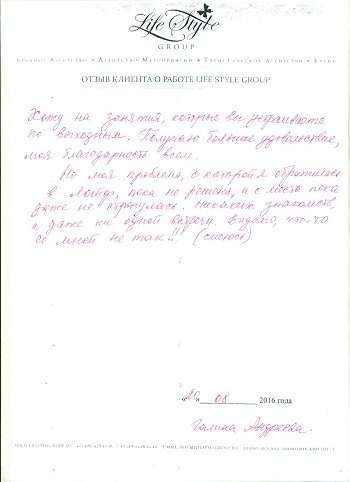 Life Style
GROUP
Брачное Агентство • Агентство Мероприятий • Туристическое Агентство •
ОТЗЫВ КЛИЕНТА О РАБОТЕ LIFE STYLE GROUP
Хожу на занятия, которые вы устраиваете
по выходным. Получаю большое удовольствие,
моя благодарность всем.
Но моя проблема, с которой я обратилась
в пока не решена, и с места пока
даже не стронулась. Никаких знакомств,
и даже ни одной встречи. Видимо, что-то
со мной не так!!! (смеюсь)
«20» 08 2016 года
Галина Андреева.